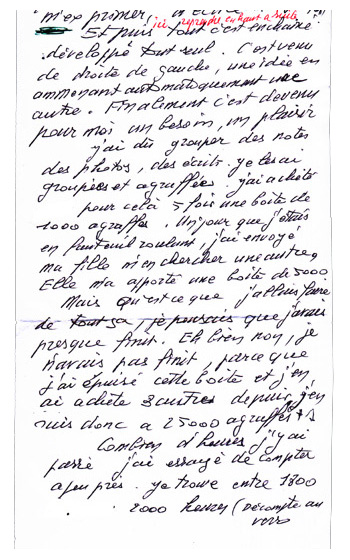 m'exprimer,
ici reprendre en haut à
Et puis tout c'est enchainé
développé tout seul. C'est venu
de droite de gauche, une idée en
ammenant automatiquement une
autre. Finaliment c'est devenu
pour moi un besoin, un plaisir
j'ai dû grouper des notes
des photos, des écrits. je les ai
groupées et agraffées. j'ai acheté
pour celà 5 fois une boite de
1000 agraffes. Un jour que j'étais
en fauteuil roulant, j'ai envoyé
ma fille m'en chercher une autre,
Elle ma apporté une boite de 5000.
Mais qu'est ce que j'allais faire
de tout sa, je pensais que j'avais
presque finit. Eh bien non, je
n'avais pas finit, parceque
j'ai épuisé cette boite et j'en
ai acheté 3 autres depuis, j'en
suis donc a 25000 agraffes
Combien d'heures j'y ai
passé j'ai essayé de compter
a peu près. je trouve entre 1800
2000 heures (décompte au
verso